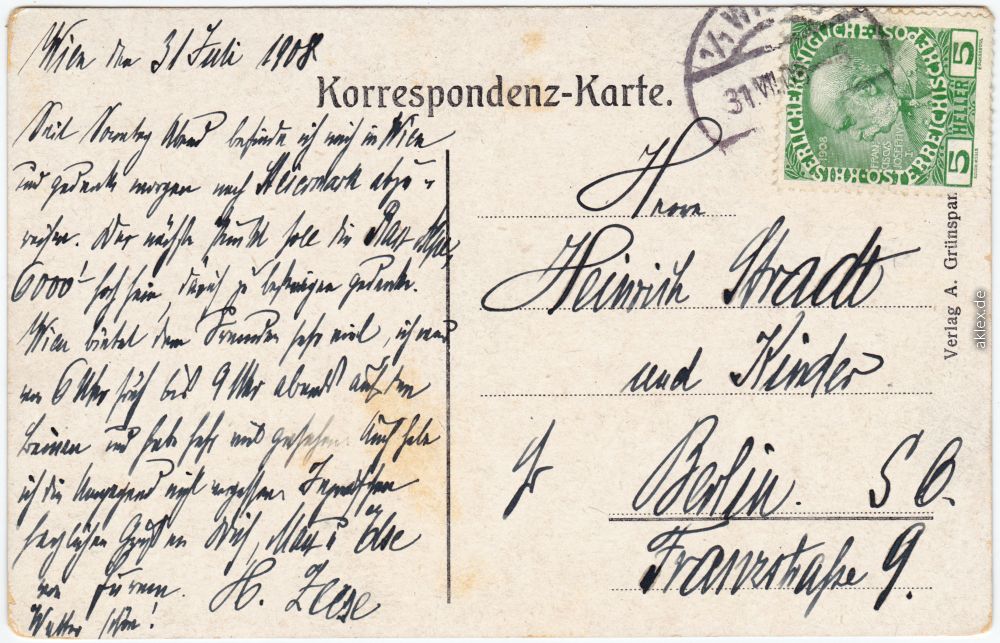 Wien den 31 Juli 1908.
Korrespondenz-Karte.
Seit Sonntag Abend befinde ich mich in Wien
und gedenke morgen nach Steiermark abzu-
reisen. Der nächste Punkt soll die Rax Alpe,
6000' hoch sein, die ich zu besteigen gedenke.
Wien bietet dem Fremden sehr viel, ich war
von 6 Uhr früh bis 9 Uhr abends auf den
Beinen und habe sehr viel gesehen. Auch habe
ich die Umgegend nicht vergessen. Inzwischen
herzlichen Gruß an Dich, Max u Else
von
H.
Wetter schön!
31.VII.
KAISERLICHE KÖNIGLICHE ÖSTERREICHISCHE POST
5 HELLER 5
1908
FRANCISCUS IOSEPHVS I
Herrn
Heinrich Stradt
und Kinder
Berlin. S O.
Franzstraße 9.
Verlag A. Grünspan
aklex.de